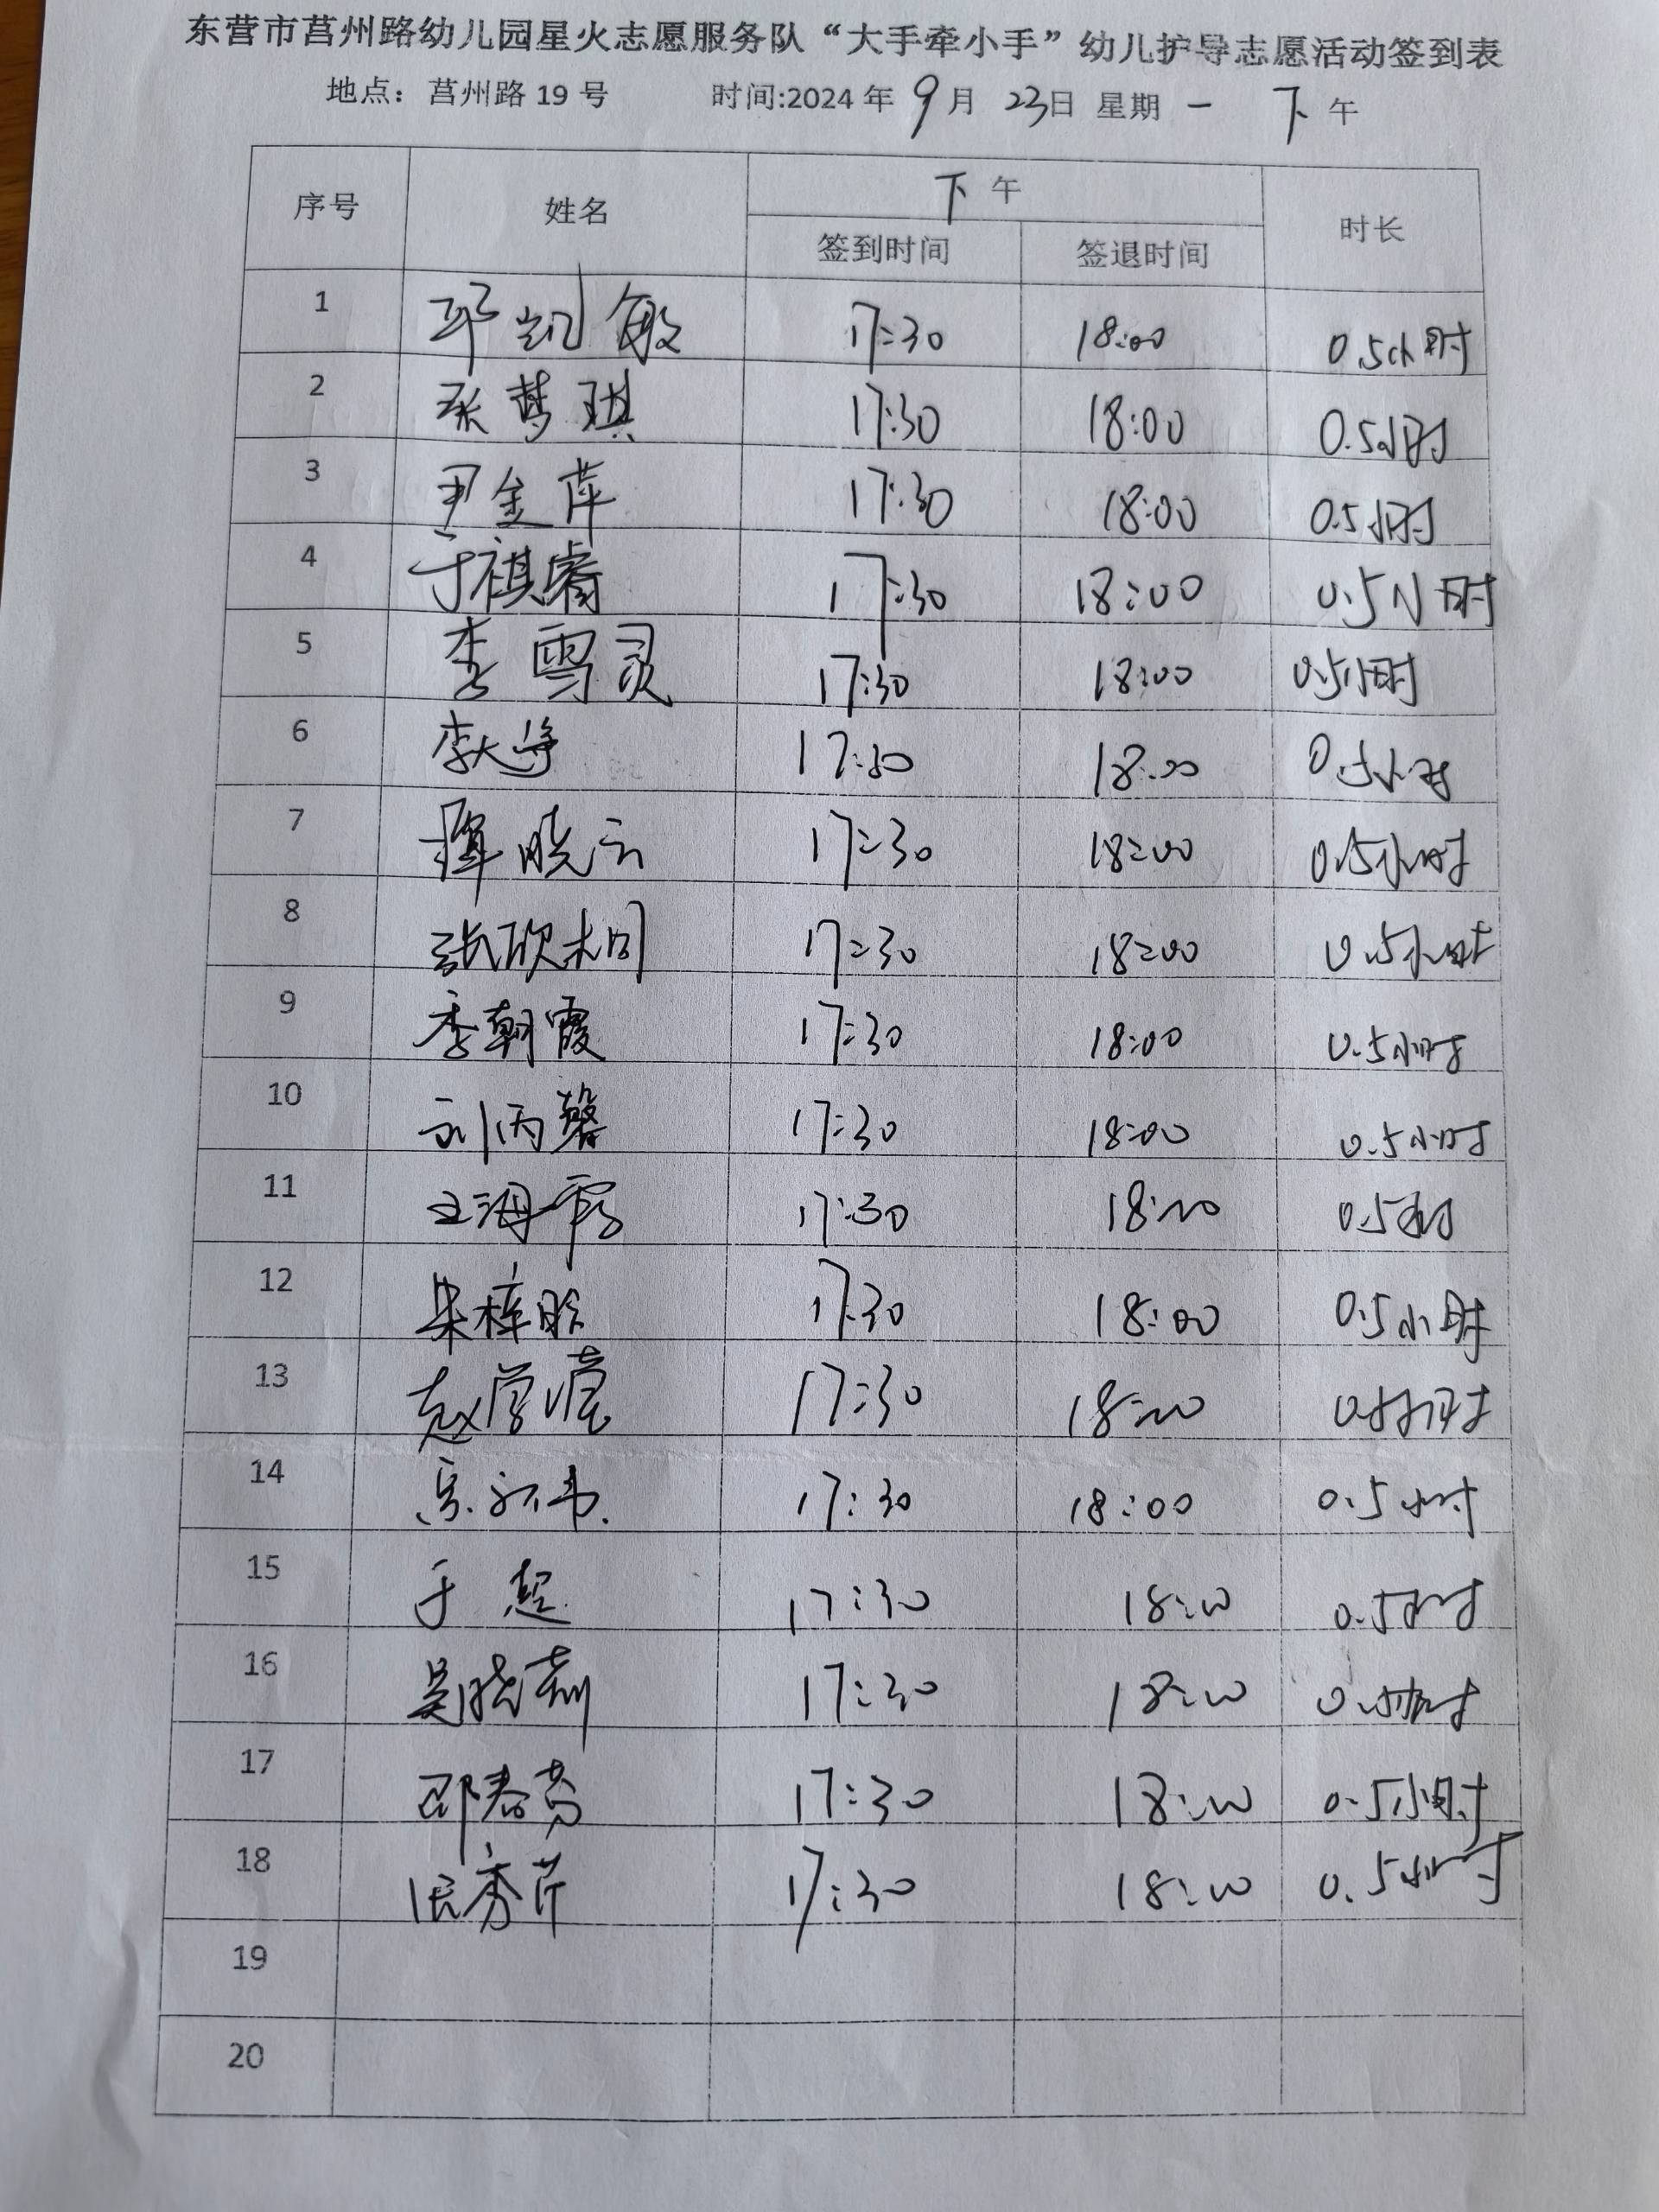 东营市莒州路幼儿园星火志愿服务队“大手牵小手”幼儿护导志愿活动签到表
地点：莒州路 19 号 时间:2024 年 9 月 23日 星期 一 下 午
序号 姓名 下 午 时长
签到时间 签退时间
1 凯敏 17:30 18:00 0.5小时
2 张梦琪 17:30 18:00 0.5小时
3 尹金萍 17:30 18:00 0.5小时
4 于祺睿 17:30 18:00 0.5小时
5 李雪灵 17:30 18:00 0.5小时
6 李 17:30 18:00 0.5小时
7 晓云 17:30 18:00 0.5小时
8 张欣桐 17:30 18:00 0.5小时
9 季朝霞 17:30 18:00 0.5小时
10 刘丙馨 17:30 18:00 0.5小时
11 王海霞 17:30 18:00 0.5小时
12 朱梓晗 17:30 18:00 0.5小时
13 赵学滢 17:30 18:00 0.5小时
14 17:30 18:00 0.5小时
15 于超 17:30 18:00 0.5小时
16 吴晓莉 17:30 18:00 0.5小时
17 邵春芳 17:30 18:00 0.5小时
18 秀芹 17:30 18:00 0.5小时
19
20